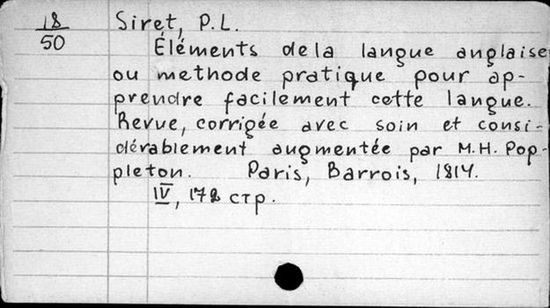 18/50 Siret, P.L.
Éléments de la langue anglaise
ou methode pratique pour ap-
prendre facilement cette langue.
Revue, corrigée avec soin et consi-
dérablement augmentée par M.H. Pop-
pleton. Paris, Barrois, 1814.
IV, 172 стр.